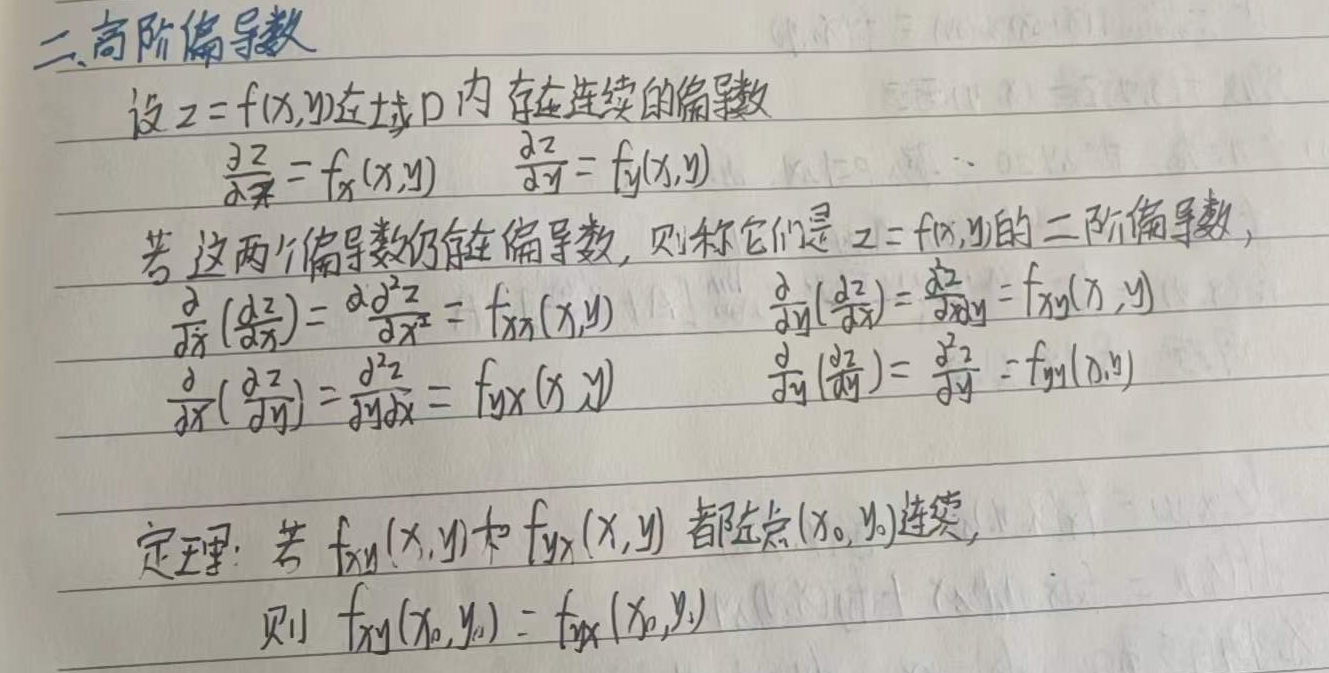 二、高阶偏导数
设 z = f(x,y)在域D内存在连续的偏导数
∂z/∂x = fx(x,y)  ∂z/∂y = fy(x,y)
若这两个偏导数仍存在偏导数, 则称它们是 z = f(x,y)的二阶偏导数,
∂/∂x (∂z/∂x) = ∂²z/∂x² = fxx(x,y)  ∂/∂y (∂z/∂x) = ∂²z/∂x∂y = fxy(x,y)
∂/∂x (∂z/∂y) = ∂²z/∂y∂x = fyx(x,y)  ∂/∂y (∂z/∂y) = ∂²z/∂y = fyy(x,y)
定理: 若 fxy(x,y)和 fyx(x,y) 都在点(x₀,y₀)连续,
则 fxy(x₀,y₀) = fyx(x₀,y₀)